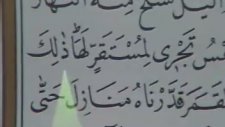 الَّيْلُ نَسْلَخُ مِنْهُ النَّهَارَ
مْسُ تَجْرِي لِمُسْتَقَرٍّ لَهَا ذَٰلِكَ
لْقَمَرَ قَدَّرْنَاهُ مَنَازِلَ حَتَّىٰ